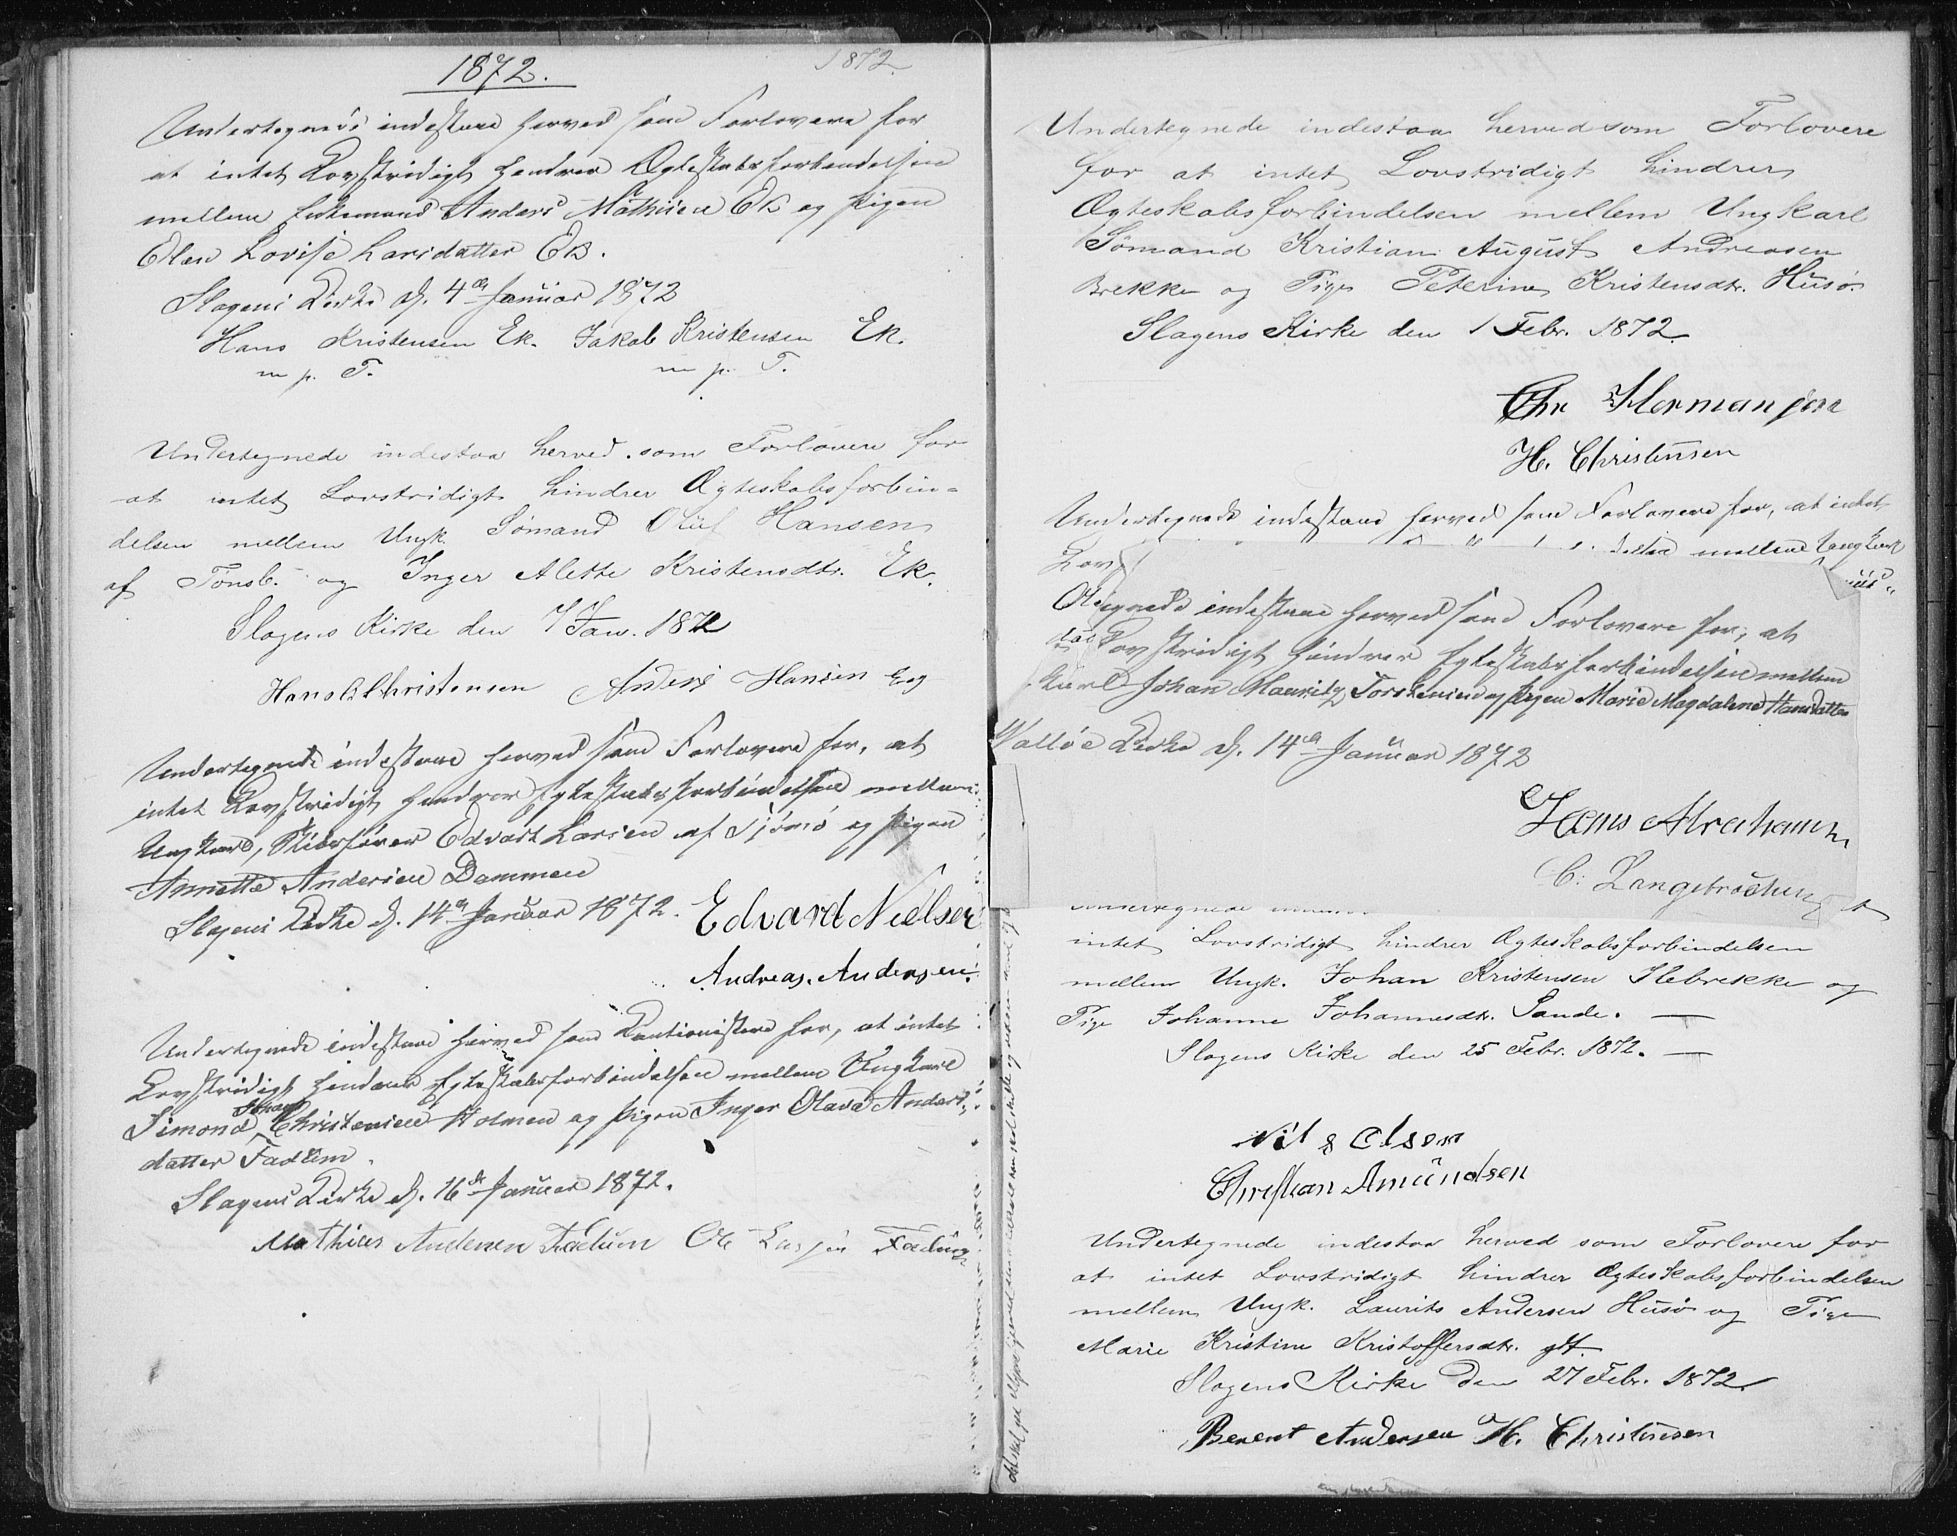 1872.
1872.
Undertegnede indestaae herved som Forlovere for
at intet Lovstridigt hindrer Ægteskabsforbindelsen
mellem Enkemand Anders Mathisen Ek og Pigen
Elen Lovise Larsdatter Ek.
Slagens Kirke d. 4de Januar 1872
Hans Kristensen Ek. Jakob Kristensen Ek.
m p. T. m p. T.
Undertegnede indestaa herved som Forlovere for
at intet Lovstridigt hindrer Ægteskabsforbin=
delsen mellem Ungk. Sømand Oluf Hansen
af Tønsb. og Inger Alette Kristensdtr. Ek.
Slagens Kirke den 7 Jan. 1872
Hans Christensen Anders Hansen Eeg
Undertegnede indestaae herved som Forlovere for, at
intet Lovstridigt hindrer Egteskabsforbindelsen mellem
Ungkarl, Skibsfører Edvart Larsen af Tjømø og Pigen
Annette Andersen Dammen
Slagens Kirke d. 14de Januar 1872.
Edvard Nielsen
Andreas. Andersen.
Undertegnede indestaae herved som Kautionister for, at intet
Lovstridigt hindrer Egteskabsforbindelsen mellem Ungkarl
Simond Johan Christensen Holmen og Pigen Inger Olava Anders
datter Fadum.
Slagens Kirke d. 16de Januar 1872.
Mathias Andersen Fadum Ole Larsen Fadum
Undertegnede indestaa herved som Forlovere
for at intet Lovstridigt hindrer
Ægteskabsforbindelsen mellem Ungkarl
Sømand Kristian August Andreasen
Brekke og Pige Peterine Kristensdtr. Husø.
Slagens Kirke den 1 Febr. 1872.
Chr Hermansen
H. Christensen
Undertegnede indestaae herved som Forlovere for, at intet
Lov mellem Ungkarl
Ole
egnede indestaae herved som Forlovere for, at
Lovstridigt hindrer Egteskabsforbindelsen mellem
karl Johan Mauritz Torstensen og Pigen Marie Magdalene Hansdatter
Valløe Kirke d. 14de Januar 1872
Hans Abrahams
C. Langebrochen
Undertegnede
intet Lovstridigt hindrer Ægteskabsforbindelsen
mellem Ungk. Johan Kristensen Ilebrekke og
Pige Johanne Johannesdtr. Sande. —
Slagens Kirke den 25 Febr. 1872. —
Nils Olsen
Christian Amundsen
Undertegnede indestaa herved som Forlovere for
at intet Lovstridigt hindrer Ægteskabsforbindelsen
mellem Ungk. Laurits Andersen Husø og Pige
Marie Kristine Kristoffersdtr. ibd.
Slagens Kirke den 27 Febr. 1872.
Berent Andersen H. Christensen